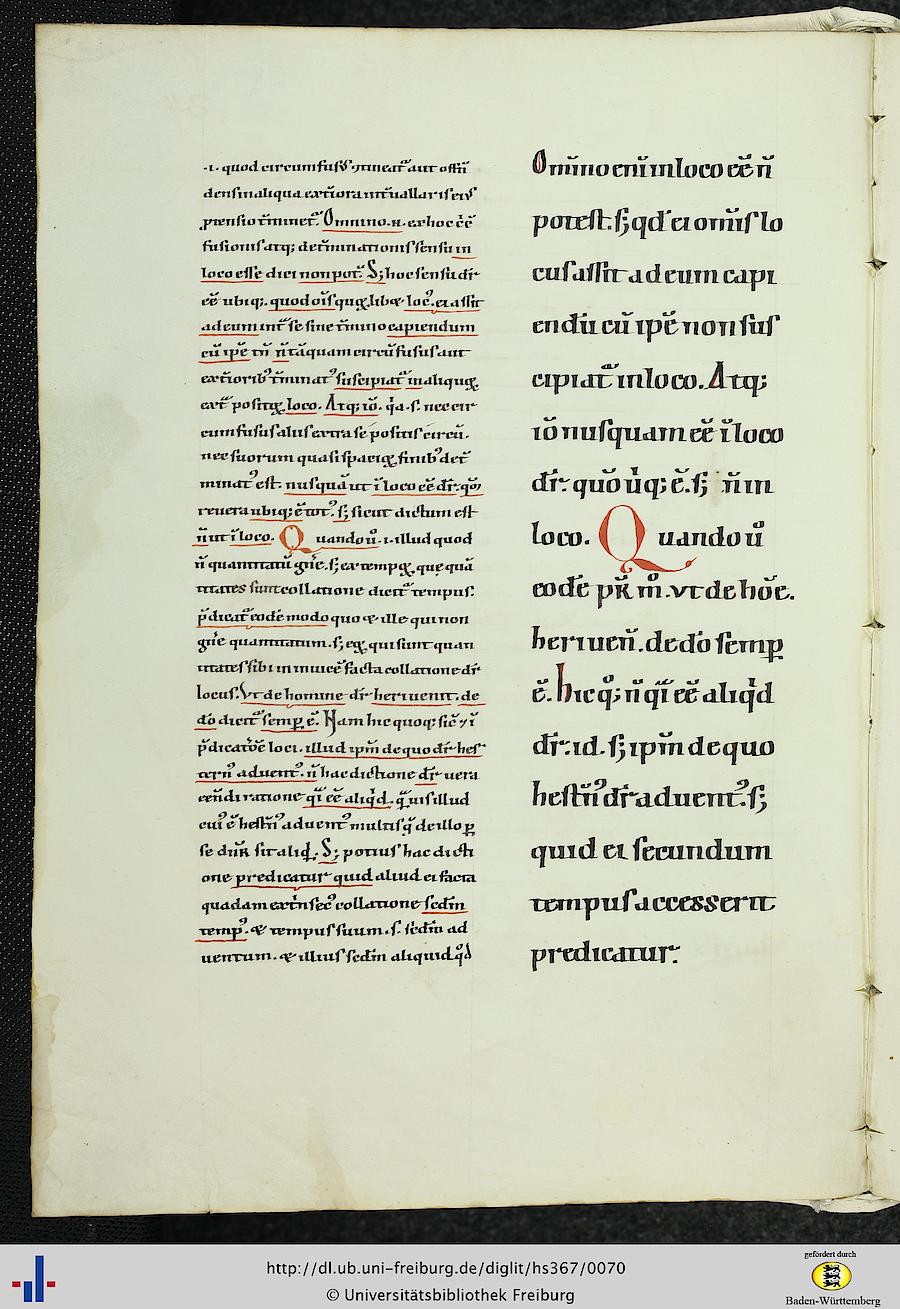 .i. quod circumfusꝰ ↄtineat᷑ aut offñ
dens in aliqua ext̃iora int̃uallaris eiꝰ
ptensio t̃minet᷑. Omnino .n. ex hoc c̃c̃
fusionis atq; det̃minationis sensu in
loco esse dici non pot̃. S; hoc sensu dr̃
ẽe ubiq;. quod oĩs quꝗ libꝫ locꝰ. ei assit
ad eum int̃ se sine t̃mino capiendum
cũ ip̃e tñ ñ tãquam circũfusus aut
ext̃iorib᾽ t̃minatꝰ suscipiat᷑ in aliquꝗ
ext̃ positꝗ loco. Atq; iõ. q̃a .s. nec cir
cumfusus aliis extra se positis circũ.
nec suorum quasi spacioꝝ finib᾽ det̃
minatꝰ est. nusquã ut ĩ loco ẽe dr̃. qm̃
reuera ubiq; ẽ totꝰ. s; sicut dictum est
ñ ut ĩ loco. Quando ů .i. illud quod
ñ quantitatũ gñe. s; ex tempoꝝ que quã
titates sunt collatione dicit᷑ tempus.
p̃dicat᷑ eodẽ modo quo & ille qui non
gñe quantitatum. s; eoꝝ qui sunt quan
titates sibi in inuicẽ facta collatione dr̃
locus. Vt de homine dr̃ heri uenit. de
dõ dicit᷑ semꝑ ẽ. Nam hic quoq; sic̃ ⁊ ĩ
p̃dicatiõe loci. illud ip̃m de quo dr̃ hes
ternꝰ aduentꝰ. ñ hac dictione dr̃ uera
eẽndi ratione qi̾ ẽe aliq̾d. q̃uis illud
cuiꝰ ẽ hest̃nꝰ aduentꝰ multis q̃ de illo ꝑ
se dnr̃ sit aliq̾d. S; potius hac dicti
one predicatur quid aliud ei facta
quadam ext̃nsecꝰ collatione scd̃m
tempꝰ. & tempus suum .s. scd̃m ad
uentum. & illius scd̃m aliquid q̾d
Om̃ino eni̅ in loco ẽe ñ
potest. s; qd̃ ei om̃is lo
cus assit ad eum capi
endũ cũ ip̃e non sus
cipiat᷑ in loco. Atq;
iõ nusquam ẽe ĩ loco
dr̃. quõ ů q; ẽ. s; ñ in
loco. Quando ů
eodẽ pr̃ mº. vt de hõe.
heri ueñ. de dõ semꝑ
ẽ. hic qº; ñ qi̾ ẽe aliq̾d
dr̃. id. s; ip̃m de quo
hest̃nꝰ dr̃ aduentꝰ. s;
quid ei secundum
tempus accesserit
predicatur.
http://dl.ub.uni-freiburg.de/diglit/hs367/0070
© Universitätsbibliothek Freiburg
gefördert durch
Baden-Württemberg